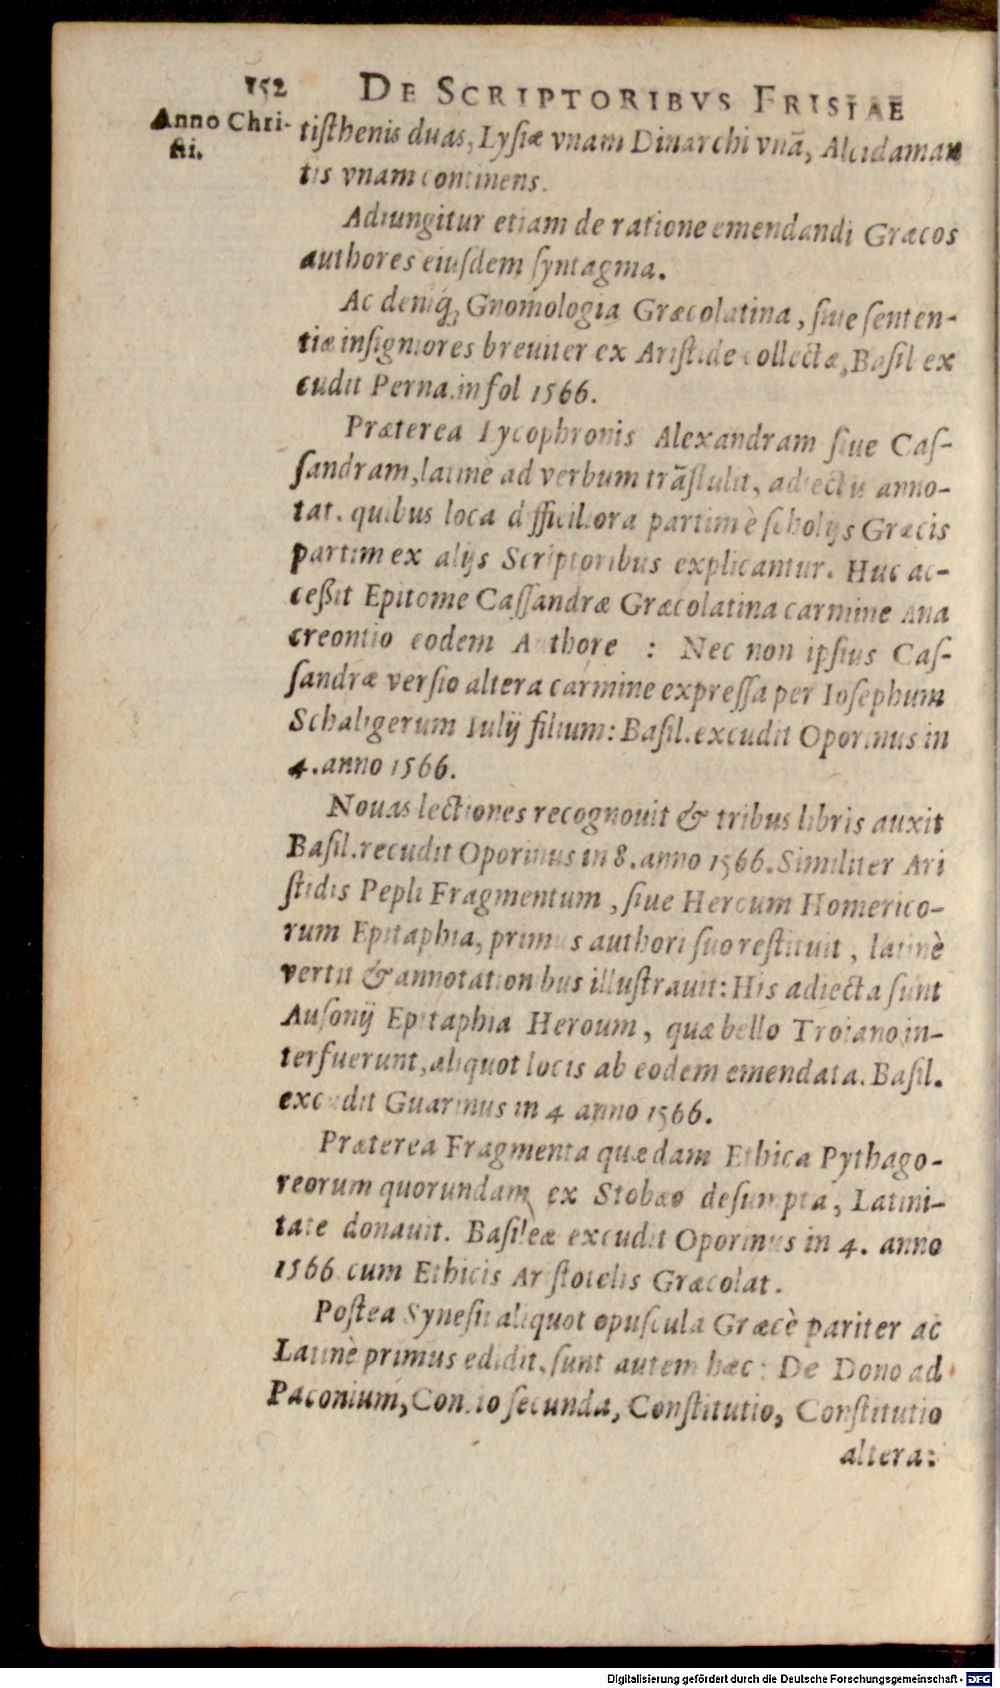 152 DE SCRIPTORIBVS FRISIAE
Anno Chri-
sti.
tisthenis duas, Lysiæ vnam Dinarchi vnā, Alcidaman
tis vnam continens.
Adiungitur etiam de ratione emendandi Græcos
authores eiusdem syntagma.
Ac deniq́; Gnomologia Græcolatina, siue senten-
tiæ insigniores breuiter ex Aristide collectæ, Basil ex
cudit Perna. in fol 1566.
Præterea Lycophronis Alexandram siue Cas-
sandram, latinè ad verbum trāstulit, adiectis anno-
tat. quibus loca difficiliora partim è scholijs Græcis
partim ex alijs Scriptoribus explicantur. Huc ac-
ceßit Epitome Cassandræ Græcolatina carmine Ana
creontio eodem Authore : Nec non ipsius Cas-
sandræ versio altera carmine expressa per Iosephum
Schaligerum Iulij filium: Basil. excudit Oporinus in
4. anno 1566.
Nouas lectiones recognouit & tribus libris auxit
Basil. recudit Oporinus in 8. anno 1566. Similiter Ari
stidis Pepli Fragmentum, siue Heroum Homerico-
rum Epitaphia, primus authori suo restituit, latinè
vertit & annotationibus illustrauit: His adiecta sunt
Ausonij Epitaphia Heroum, quæ bello Troiano in-
terfuerunt, aliquot locis ab eodem emendata. Basil.
excudit Guarinus in 4 anno 1566.
Præterea Fragmenta quædam Ethica Pythago-
reorum quorundam ex Stobæo desumpta, Latini-
tate donauit. Basileæ excudit Oporinus in 4. anno
1566 cum Ethicis Aristotelis Græcolat.
Postea Synesii aliquot opuscula Græcè pariter ac
Latinè primus edidit, sunt autem hæc: De Dono ad
Paconium, Con.io secunda, Constitutio, Constitutio
altera:
Digitalisierung gefördert durch die Deutsche Forschungsgemeinschaft - DFG